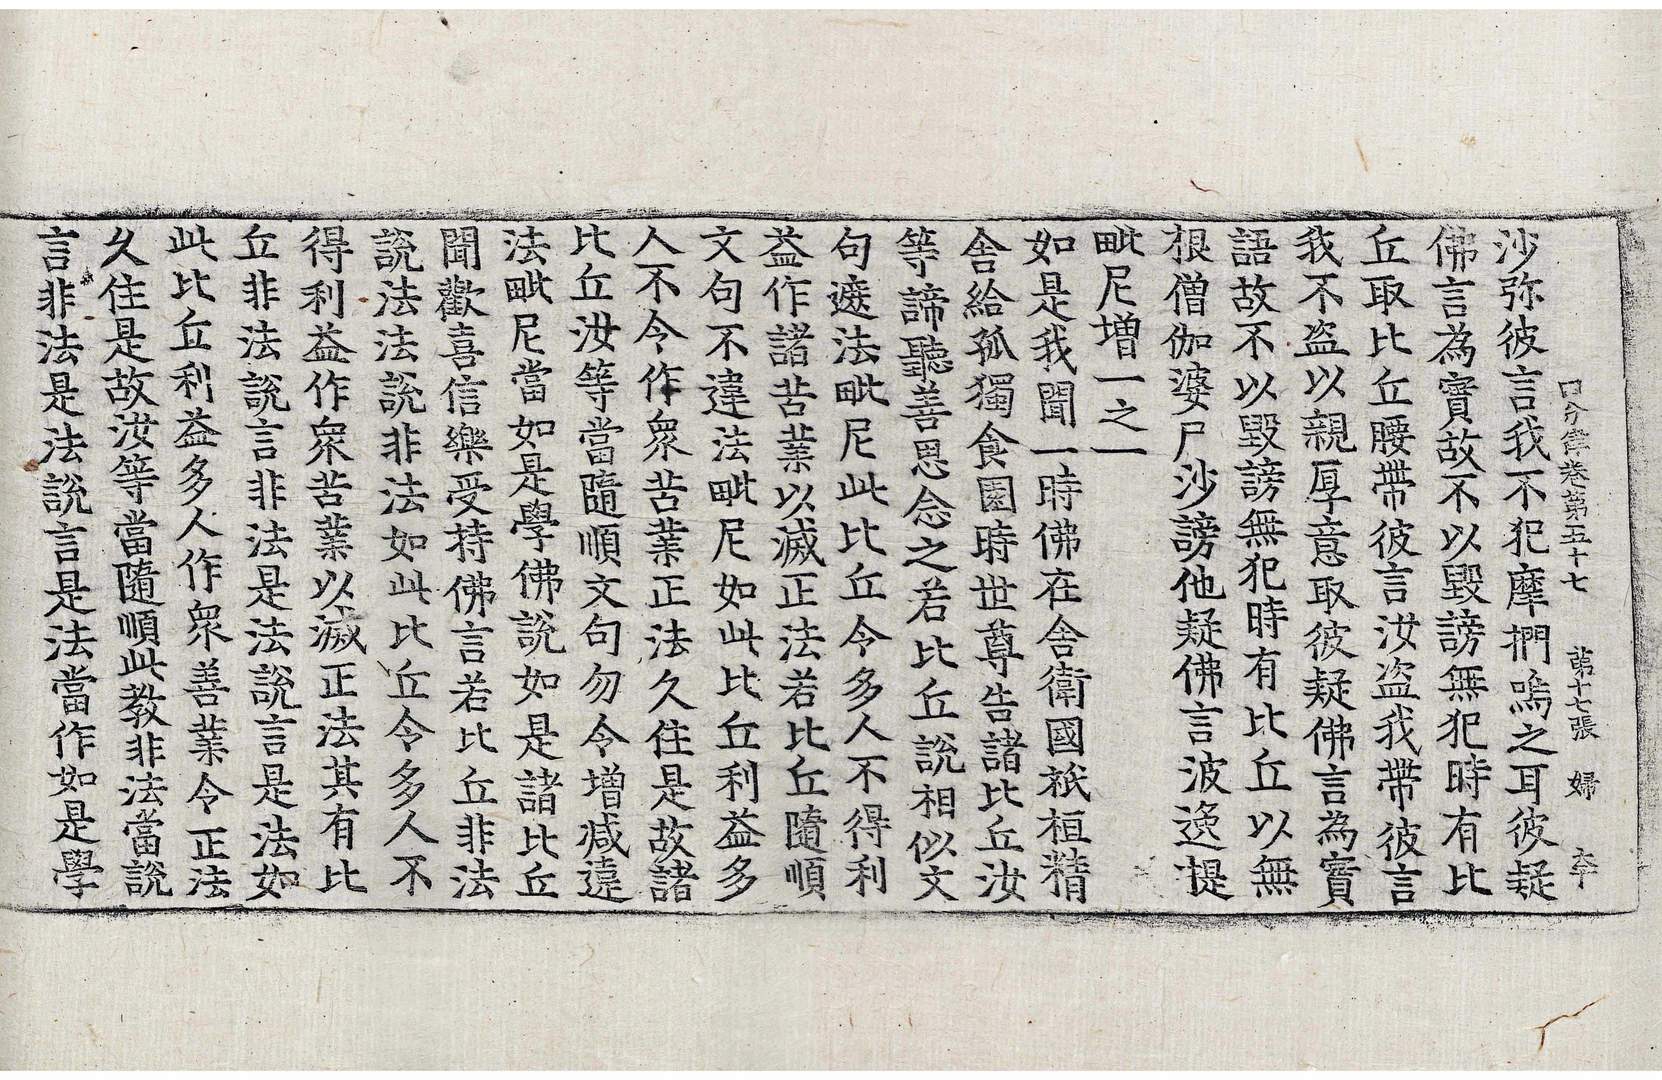 四分律卷第五十七 第十七張 婦
沙弥彼言我不犯摩捫嗚之耳彼疑
佛言為實故不以毀謗無犯時有比
丘取比丘腰帶彼言汝盜我帶彼言
我不盜以親厚意取彼疑佛言為實
語故不以毀謗無犯時有比丘以無
根僧伽婆尸沙謗他疑佛言波逸提
毗尼增一之一
如是我聞一時佛在舍衛國祇桓精
舍給孤獨食園時世尊告諸比丘汝
等諦聽善思念之若比丘說相似文
句遮法毗尼此比丘令多人不得利
益作諸苦業以滅正法若比丘隨順
文句不違法毗尼如此比丘利益多
人不令作衆苦業正法久住是故諸
比丘汝等當隨順文句勿令增減違
法毗尼當如是學佛說如是諸比丘
聞歡喜信樂受持佛言若比丘非法
說法法說非法如此比丘令多人不
得利益作衆苦業以滅正法其有比
丘非法說言非法是法說言是法如
此比丘利益多人作衆善業令正法
久住是故汝等當隨順此教非法當說
言非法是法說言是法當作如是學